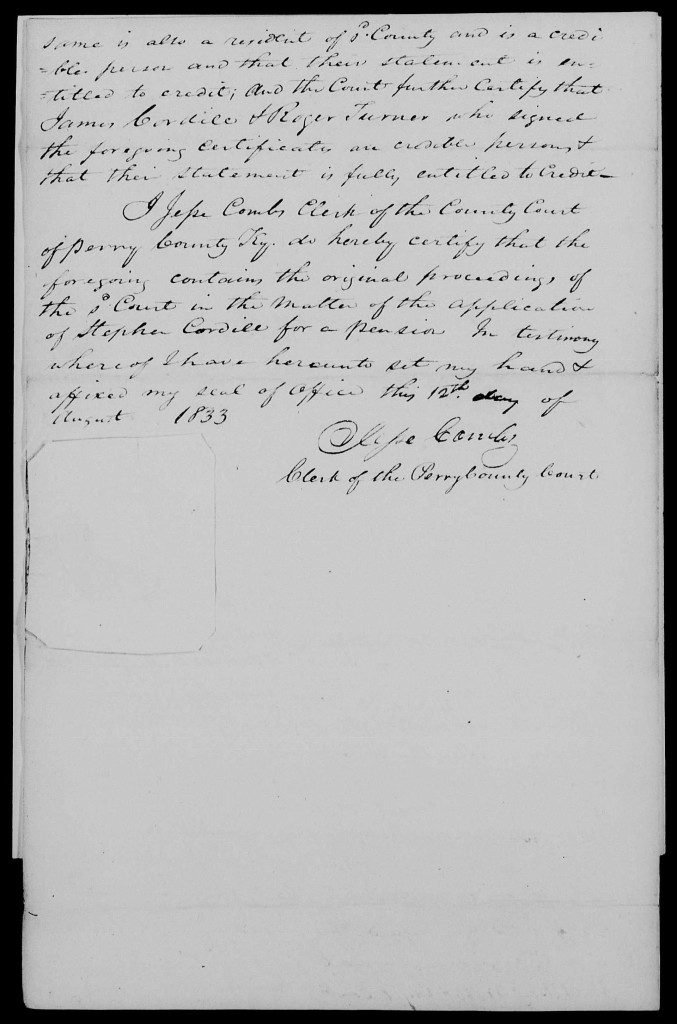 same is also a resident of sd. County and is a credi
=ble person and that their statement is en-
=titled to credit; And the Court further Certify that
James Cordill & Roger Turner who signed
the foregoing certificates are credible persons &
that their statement is fully entitled to Credit—
I Jesse Combs Clerk of the County Court
of Perry County Ky. do hereby certify that the
foregoing contains the original proceedings of
the sd Court in the Matter of the application
of Stephen Cordill for a pension In testimony
where of I have hereunto set my hand &
affixed my seal of office this 12th. day of
August 1833
Jesse Combs
Clerk of the Perry County Court